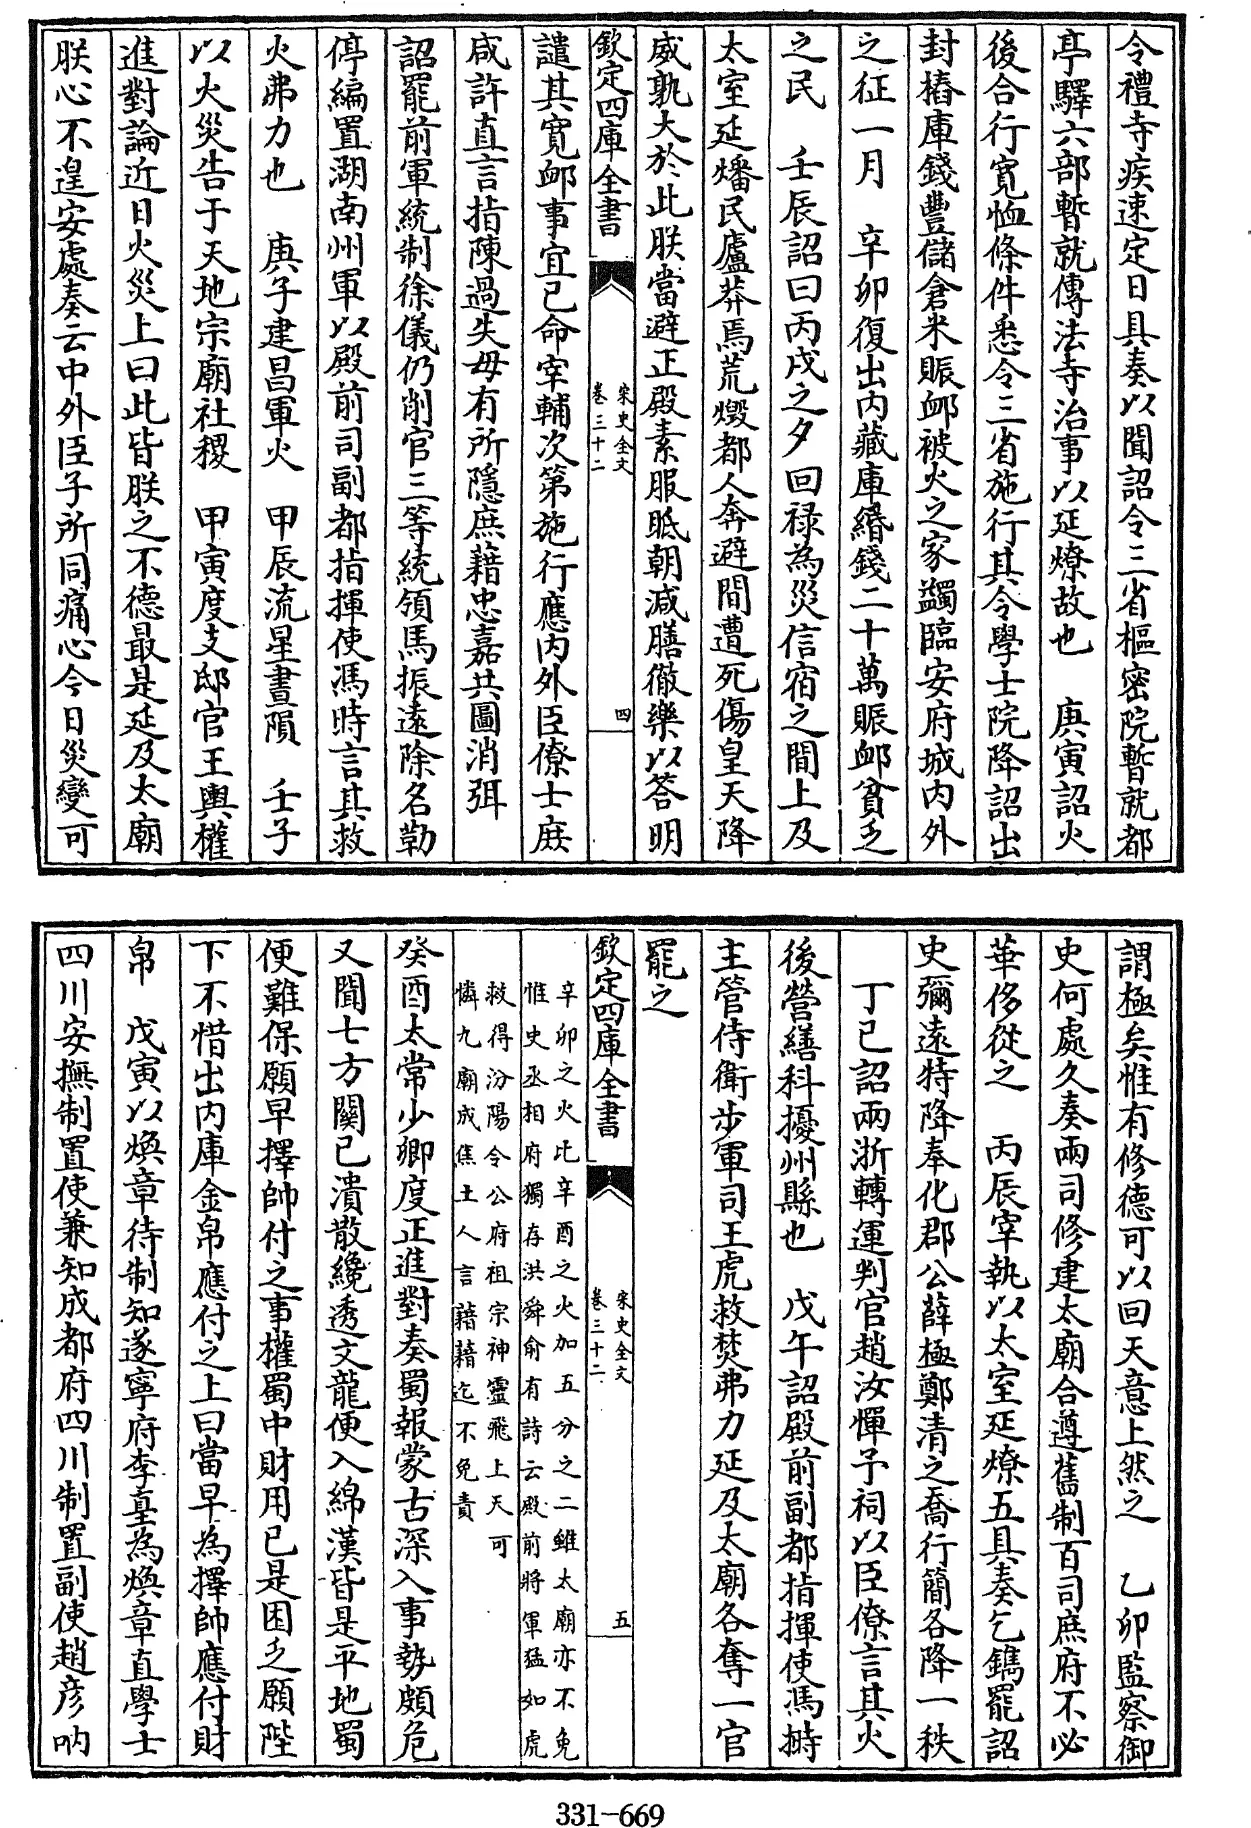 令禮寺疾速定日具奏以聞詔令三省樞密院暫就都
亭驛六部暫就傳法寺治事以延燎故也　庚寅詔火
後合行寛恤條件悉令三省施行其令學士院降詔出
封樁庫錢豐儲倉米賑䘏被火之家蠲臨安府城内外
之征一月　辛卯復出内藏庫緡錢二十萬賑䘏貧乏
之民　壬辰詔曰丙戌之夕回禄為災信宿之間上及
太室延燔民廬莽焉荒燬都人奔避間遭死傷皇天降
威孰大於此朕當避正殿素服眡朝減膳徹樂以答明
欽定四庫全書
宋史全文
卷三十二
四
譴其寛䘏事宜已命宰輔次第施行應内外臣僚士庶
咸許直言指陳過失毋有所隱庶藉忠嘉共圖消弭
詔罷前軍統制徐儀仍削官三等統領馬振遠除名勒
停編置湖南州軍以殿前司副都指揮使馮時言其救
火弗力也　庚子建昌軍火　甲辰流星晝隕　壬子
以火災告于天地宗廟社稷　甲寅度支郎官王輿權
進對論近日火災上曰此皆朕之不德最是延及太廟
朕心不遑安處奏云中外臣子所同痛心今日災變可
謂極矣惟有修德可以回天意上然之　乙卯監察御
史何處久奏兩司修建太廟合遵舊制百司庶府不必
華侈從之　丙辰宰執以太室延燎五具奏乞鐫罷詔
史彌遠特降奉化郡公薛極鄭清之喬行簡各降一秩
丁巳詔兩浙轉運判官趙汝憚予祠以臣僚言其火
後營繕科擾州縣也　戊午詔殿前副都指揮使馮榯
主管侍衛步軍司王虎救焚弗力延及太廟各奪一官
罷之
欽定四庫全書
宋史全文
卷三十二
五
辛卯之火比辛酉之火加五分之二雖太廟亦不免
惟史丞相府獨存洪舜俞有詩云殿前將軍猛如虎
救得汾陽令公府祖宗神靈飛上天可
憐九廟成焦土人言藉藉迄不免責
癸酉太常少卿度正進對奏蜀報蒙古深入事勢頗危
又聞七方關已潰散纔透文龍便入綿漢皆是平地蜀
便難保願早擇帥付之事權蜀中財用已是困乏願陛
下不惜出内庫金帛應付之上曰當早為擇帥應付財
帛　戊寅以煥章待制知遂寧府李𡌴為煥章直學士
四川安撫制置使兼知成都府四川制置副使趙彦吶
331-669